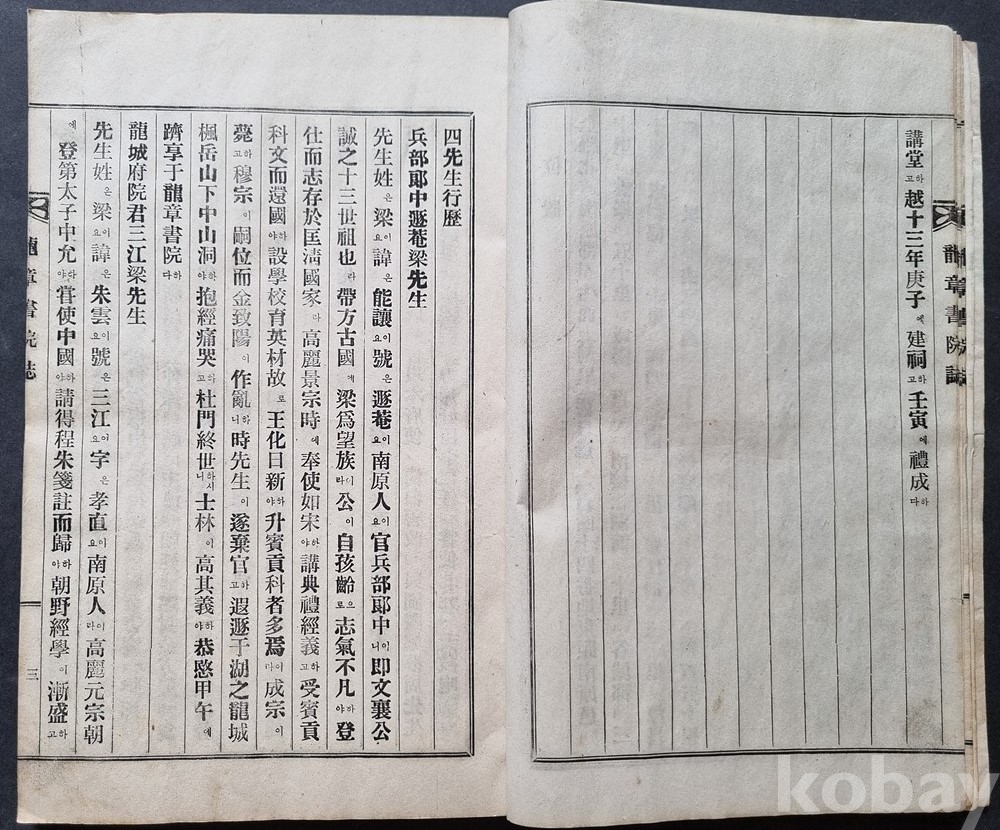 龍章書院誌
講堂하고越十三年庚子에建祠하고壬寅에禮成하다
四先生行歷
兵部郞中遯菴梁先生
先生姓은梁이요諱은能讓이요號은遯菴이요南原人이요官兵部郞中이니即文襄公
誠之十三世祖也라帶方古國에梁爲望族이라公이自孩齡으로志氣不凡하야登
仕而志存於匡淸國家다高麗景宗時에奉使如宋하야講典禮經義하고受賓貢
科文而還國하야設學校育英材故로王化日新하야升賓貢科者多焉이다成宗이
薨하고穆宗이嗣位而金致陽이作亂하니時先生이遂棄官하고遐遯于湖之龍城
楓岳山下中山洞하야抱經痛哭하고杜門終世하시니士林이高其義하야恭愍甲午에
躋享于龍章書院하다
龍城府院君三江梁先生
先生姓은梁이요諱은朱雲이요號은三江이요字은孝直이요南原人이라高麗元宗朝
에登第太子中允하야甞使中國하야請得程朱箋註而歸하야朝野經學이漸盛하고
龍章書院誌
三
kobay